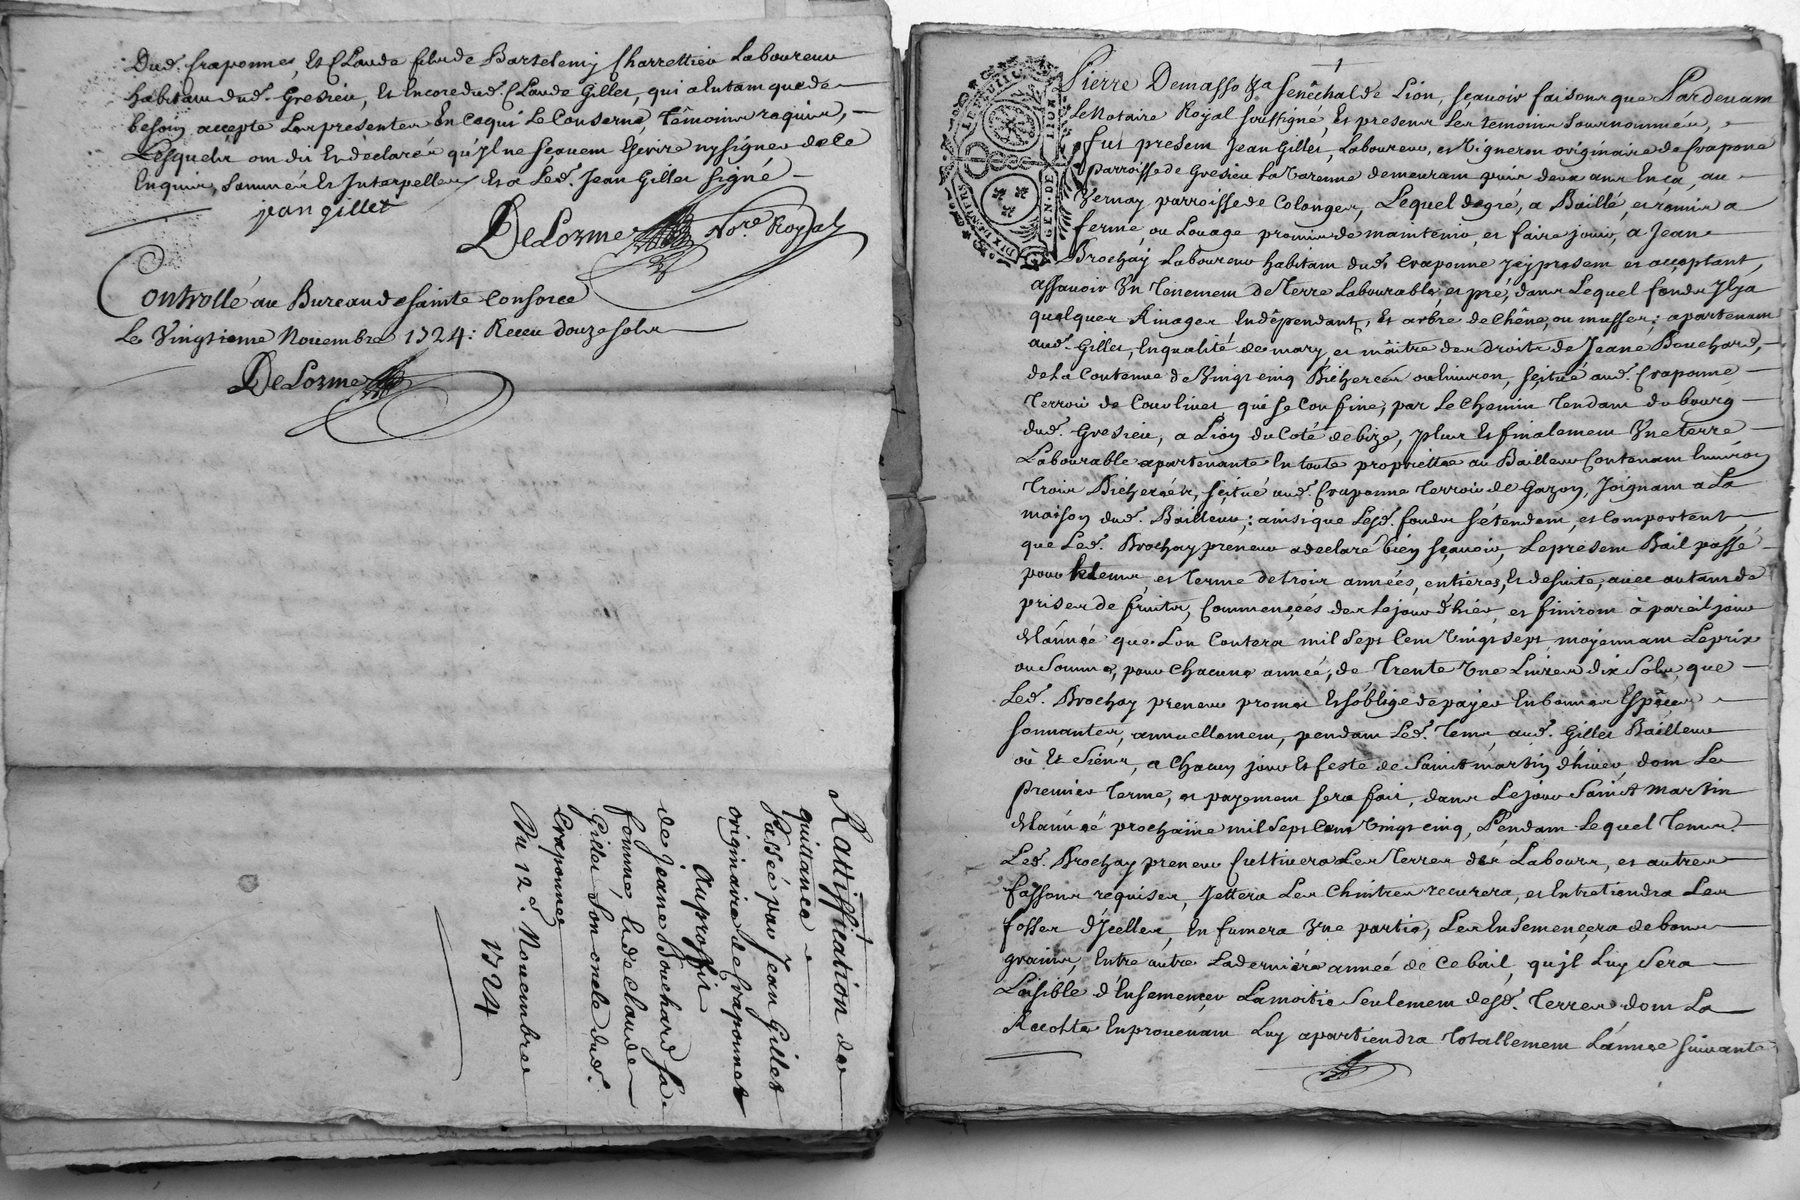 Dud. Craponne, Et Claude filz de Bartelemy Charrettier Laboureur
habitant dud. Gresieu, Et Encore dud. Claude Gillet, qui a Entant que de
besoin accepte Les presentes En ce qui Le Conserne, Témoins requis,
Lesquels ont dit Et declarés qu'Ilz ne sçavent Escrire ny signer de ce
Enquis, Sommés Et Interpellez Et a Led. Jean Gillet signé
jean gillet
DeLorme Nore. Royal
Controllé au Bureau de sainte Consorce
Le Vingtieme Novembre 1724: Receu douze sols
DeLorme
Rattiffication de
quittance
Passée par Jean Gillet
originaire de Craponne
Au proffit
de jeane Bouchard sa
femme, & de Claude
Gillet son oncle dud.
Craponne
Du 12e. Novembre
1724
Pierre Demasso &a Senêchal de Lion, sçavoir faisons que Pardevant
Le Notaire Royal soussigné, Et presens Les temoins Sournommés,
fut present Jean Gillet, Laboureur, et Vigneron originaire de Crapone
Parroisse de Gresieu La Varenne demeurant puis deux ans En ça, au
Vernay parroisse de Colonges, Lequel degré, a Baillé, et remis a
ferme, ou Louage promis de maintenir, et faire jouir, a Jean
Brochay Laboureur habitant dud. Craponne Jcy present et acceptant,
assavoir Vn Tenement de Terre Labourable et pré, dans Lequel fonds Jlya
quelques Rivages Endépendants, Et arbre de Chêne, ou ; apartenant
aud. Gillet, En qualité de mary, et maître des droits de Jeane Bouchard,
de La Contenue de Vingt cinq Bicherées ou Environ, scitué aud. Craponne
Terroir de Couvlines, qui se Confine, par Le chemin Tendant du bourg
dud. Gresieu, a Lion du Coté de bize, Plus Et finalement Vne terre
Labourable apartenante En toute proprietté au Bailleur Contenant Environ
Trois Bicherées, scitué aud. Craponne Terroir de Gazon, Joignant a La
maison dud. Bailleur; ainsi que Lesd. fonds s'étendent, et Comportent
que Led. Brochay preneur a declaré bien sçavoir, Le present Bail passé
pour Le tems, et Terme de trois années, entieres, Et de suite, avec autant de
prises de fruits, Commencées des Le jour d'hier, et finiront à pareil jour
de L'année que L'on Contera mil Sept Cent Vingt sept, moyennant Le prix
ou Somme, pour Chacune année, de Trente Vne Livres dix Sols, que
Led. Brochay preneur promet Et s'oblige de payer En bonnes Espèces
sonnantes, annuellement, pendant Led. Tems, aud. Gillet Bailleur
où Et Siens, a Chacun jour Et feste de Saint martin d'hiver, dont Le
Premier terme, et payement sera fait, dans Le jour Saint Martin
de L'année prochaine mil Sept Cent Vingt cinq, Pendant Lequel Tems
Led. Brochay preneur Cultivera Les Terres des Labours, et autres
fassons requises, Jettera Les Chintres recurera, et Entretiendra Les
fosses d'Jcelles, En fumera Vne partie, Les Ensemencera de bons
grains, Entre autre La derniére année de Ce bail, qu'jl Luy Sera
Loisible d'Ensemencer La moitié Seulement desd. Terres dont La
Recolte En provenant Luy apartiendra Totallement L'année suivante